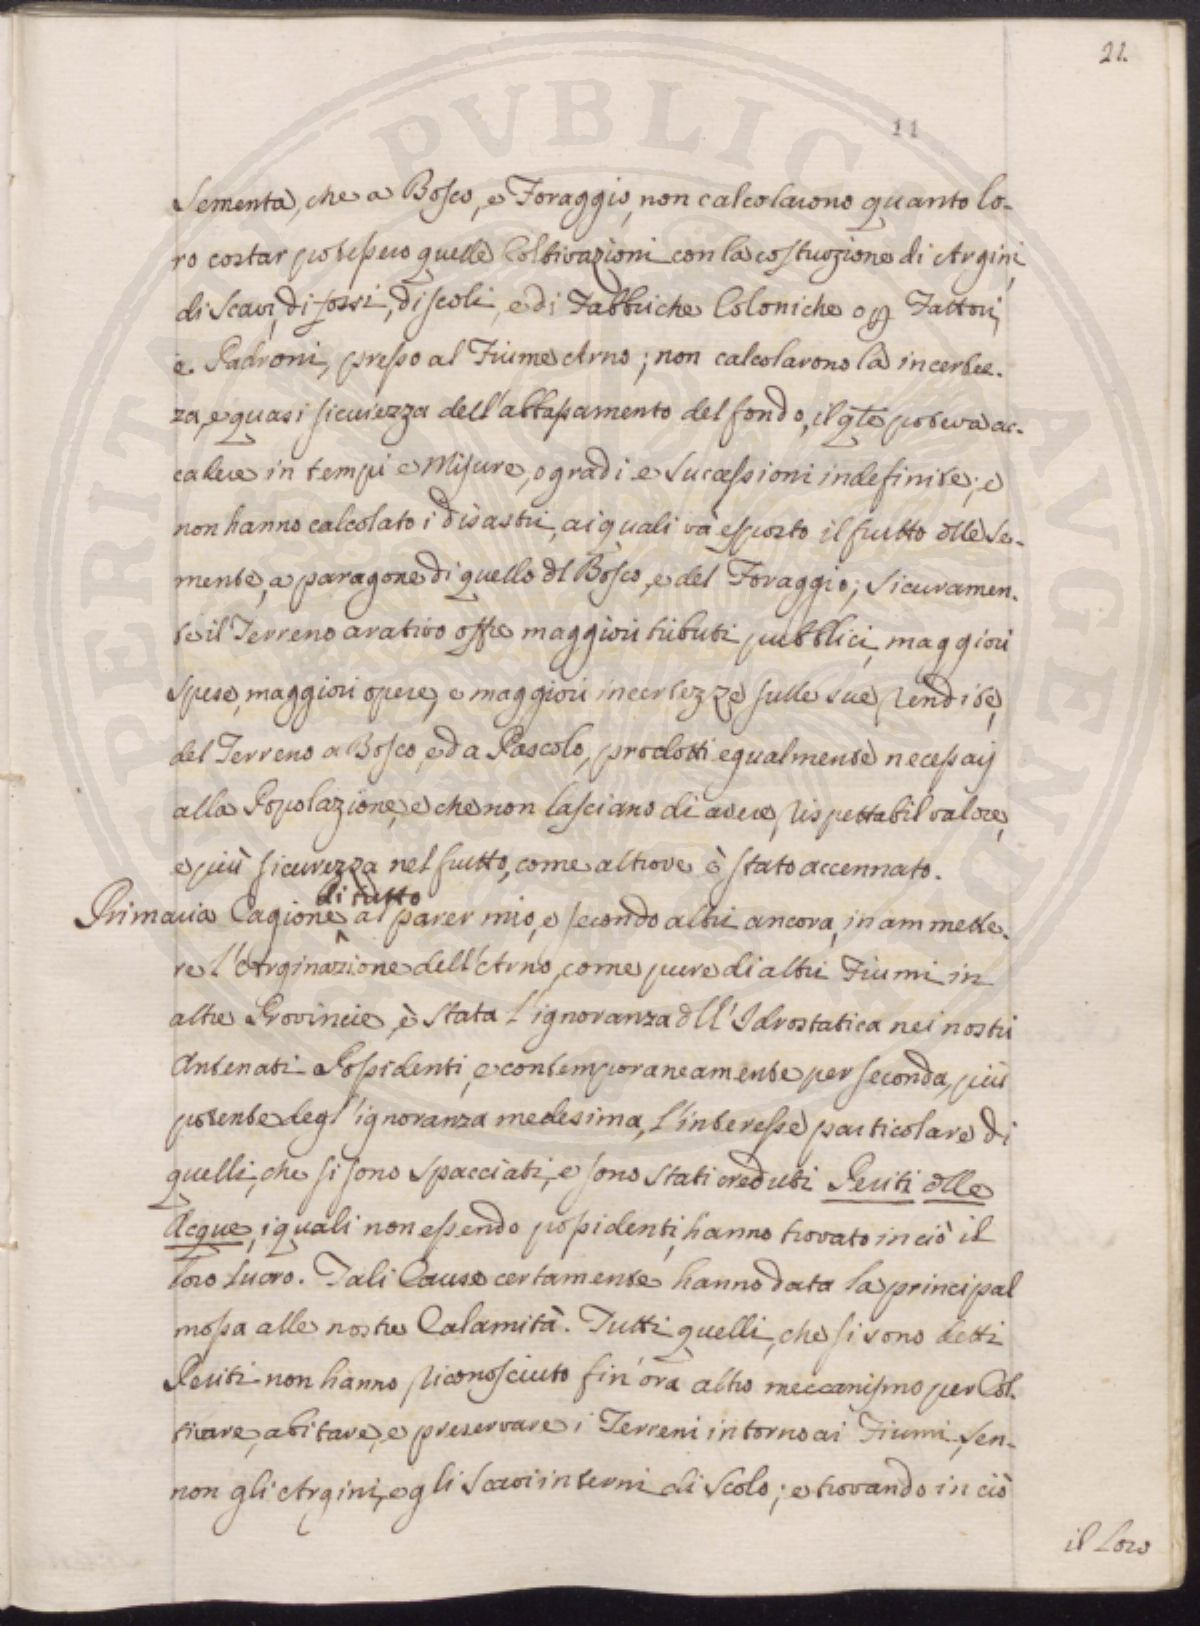 21.
11
Sementa, che a Bosco, e Foraggio, non calcolarono quanto lo-
ro costar potessero quelle Coltivazioni con la costruzione di Argini,
di Scavi, di fossi, di scoli, e di Fabbriche Coloniche Fattori,
e Padroni, presso al Fiume Arno; non calcolarono la incertez-
za, e quasi sicurezza dell'abbassamento del fondo, il qle poteva ac-
cadere in tempi e Misure, o gradi e Successioni indefinite; e
non hanno calcolato i disastri, ai quali và esposto il frutto dlle Se-
mente, a paragone di quello dl Bosco, e del Foraggio; Sicuramen-
te il Terreno arativo offre maggiori tributi pubblici, maggiori
spese, maggiori opere, e maggiori incertezze sulle sue Rendite,
del Terreno a Bosco, e da Pascolo, prodotti egualmente necessarj
alla Popolazione, e che non lasciano di avere rispettabil valore,
e più sicurezza nel frutto, come altrove è stato accennato.
di tutto
Primaria Cagione al parer mio, e secondo altri ancora, in ammette-
re l'Arginazione dell'Arno, come pure di altri Fiumi in
altre Provincie, è stata l'ignoranza dll'Idrostatica nei nostri
Antenati Possidenti, e contemporaneamente per seconda, più
potente degl'ignoranza medesima, l'interesse particolare di
quelli, che si sono spacciati, e sono stati creduti Periti dlle
Acque, i quali non essendo possidenti, hanno trovato in ciò il
loro lucro. Tali Cause certamente hanno data la principal
mossa alle nostre Calamità. Tutti quelli, che si sono detti
Periti non hanno riconosciuto fin'ora altro meccanismo per Col-
tivare, abitare, e preservare i Terreni intorno ai Fiumi, sen-
non gli Argini, e gli Scavi interni di Scolo; e trovando in ciò
il Loro